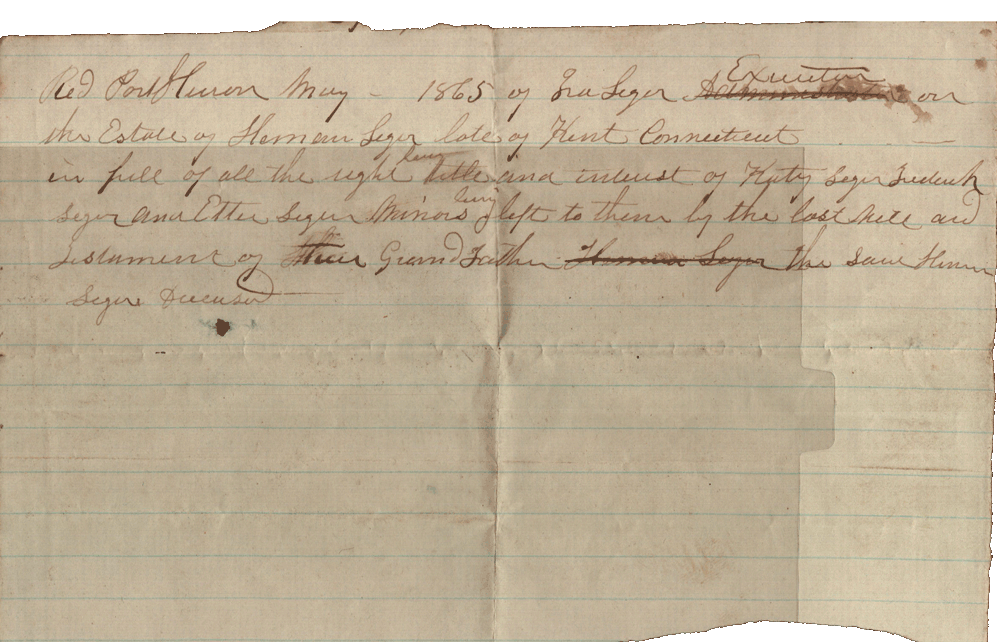 Recd Port Huron May - 1865 of Ira Seger Executor Administrator on
the Estate of Heman Seger late of Kent Connecticut
in full of all the right title and interest of Katy Seger Frederick
Seger and Etter Seger Minors left to them by the last Will and
Testament of their Grand Father Heman Seger the Said Heman
Seger Deceased